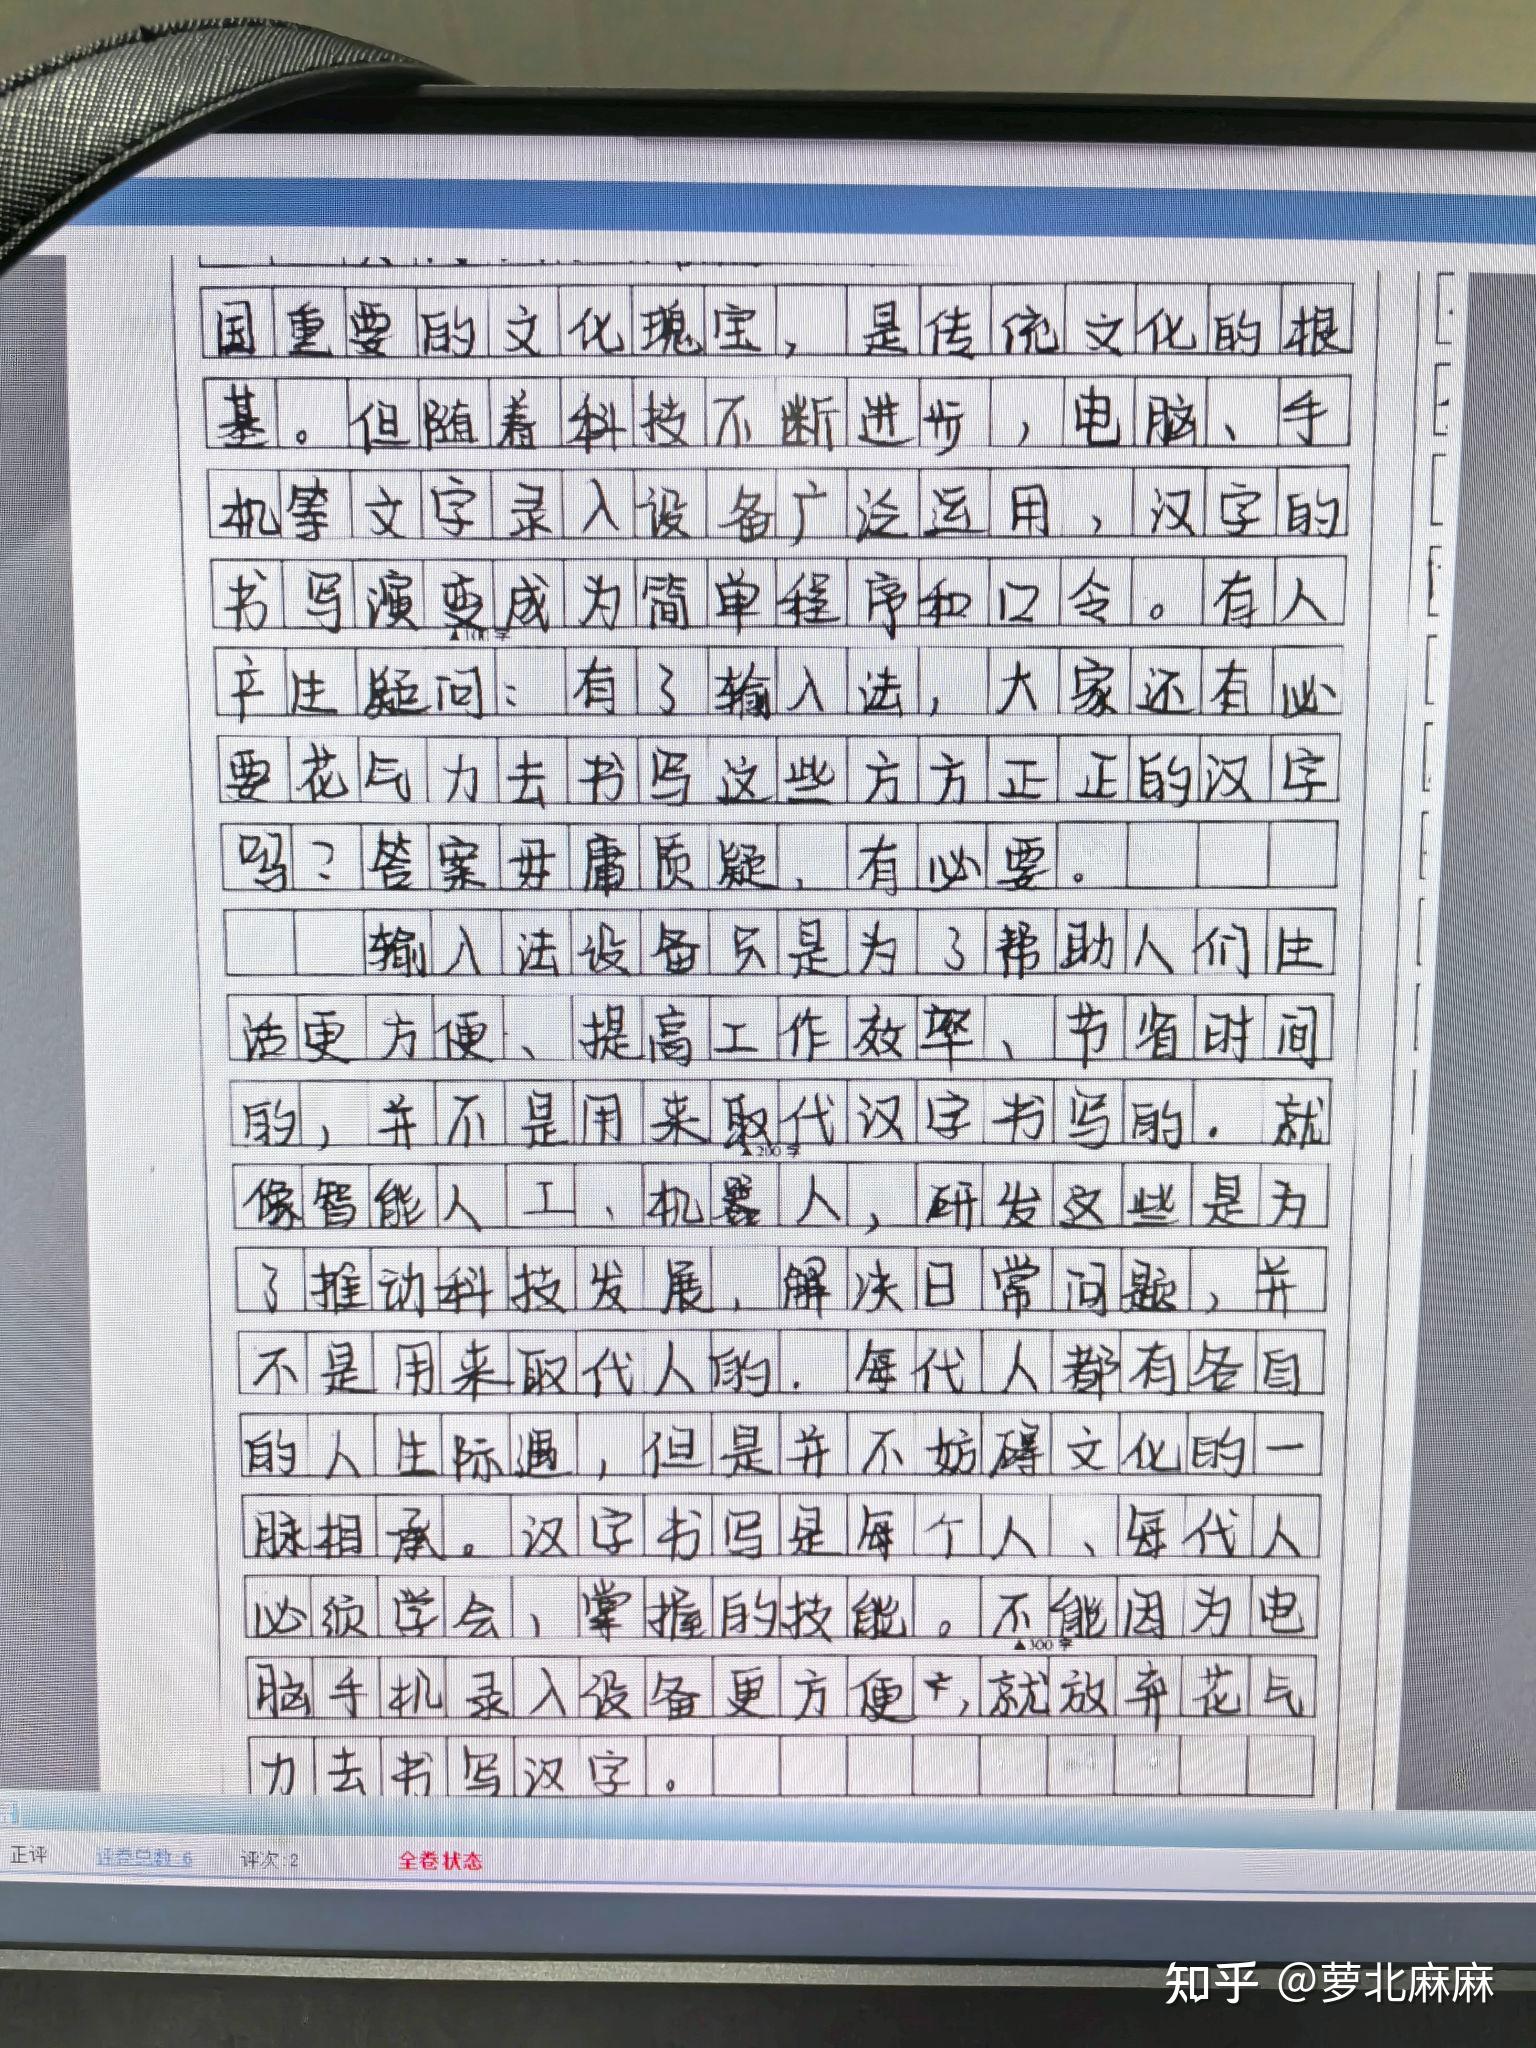 国重要的文化瑰宝，是传统文化的根
基。但随着科技不断进步，电脑、手
机等文字录入设备广泛运用，汉字的
书写演变成为简单程序和口令。有人
▲100字
产生疑问：有了输入法，大家还有必
要花气力去书写这些方方正正的汉字
吗？答案毋庸质疑，有必要。
输入法设备只是为了帮助人们生
活更方便、提高工作效率、节省时间
的，并不是用来取代汉字书写的．就
▲200字
像智能人工、机器人，研发这些是为
了推动科技发展，解决日常问题，并
不是用来取代人的．每代人都有各自
的人生际遇，但是并不妨碍文化的一
脉相承。汉字书写是每个人、每代人
必须学会、掌握的技能。不能因为电
▲300字
脑手机录入设备更方便，就放弃花气
力去书写汉字。
正评 评卷总数:6 评次:2 全卷状态
知乎 @萝北麻麻